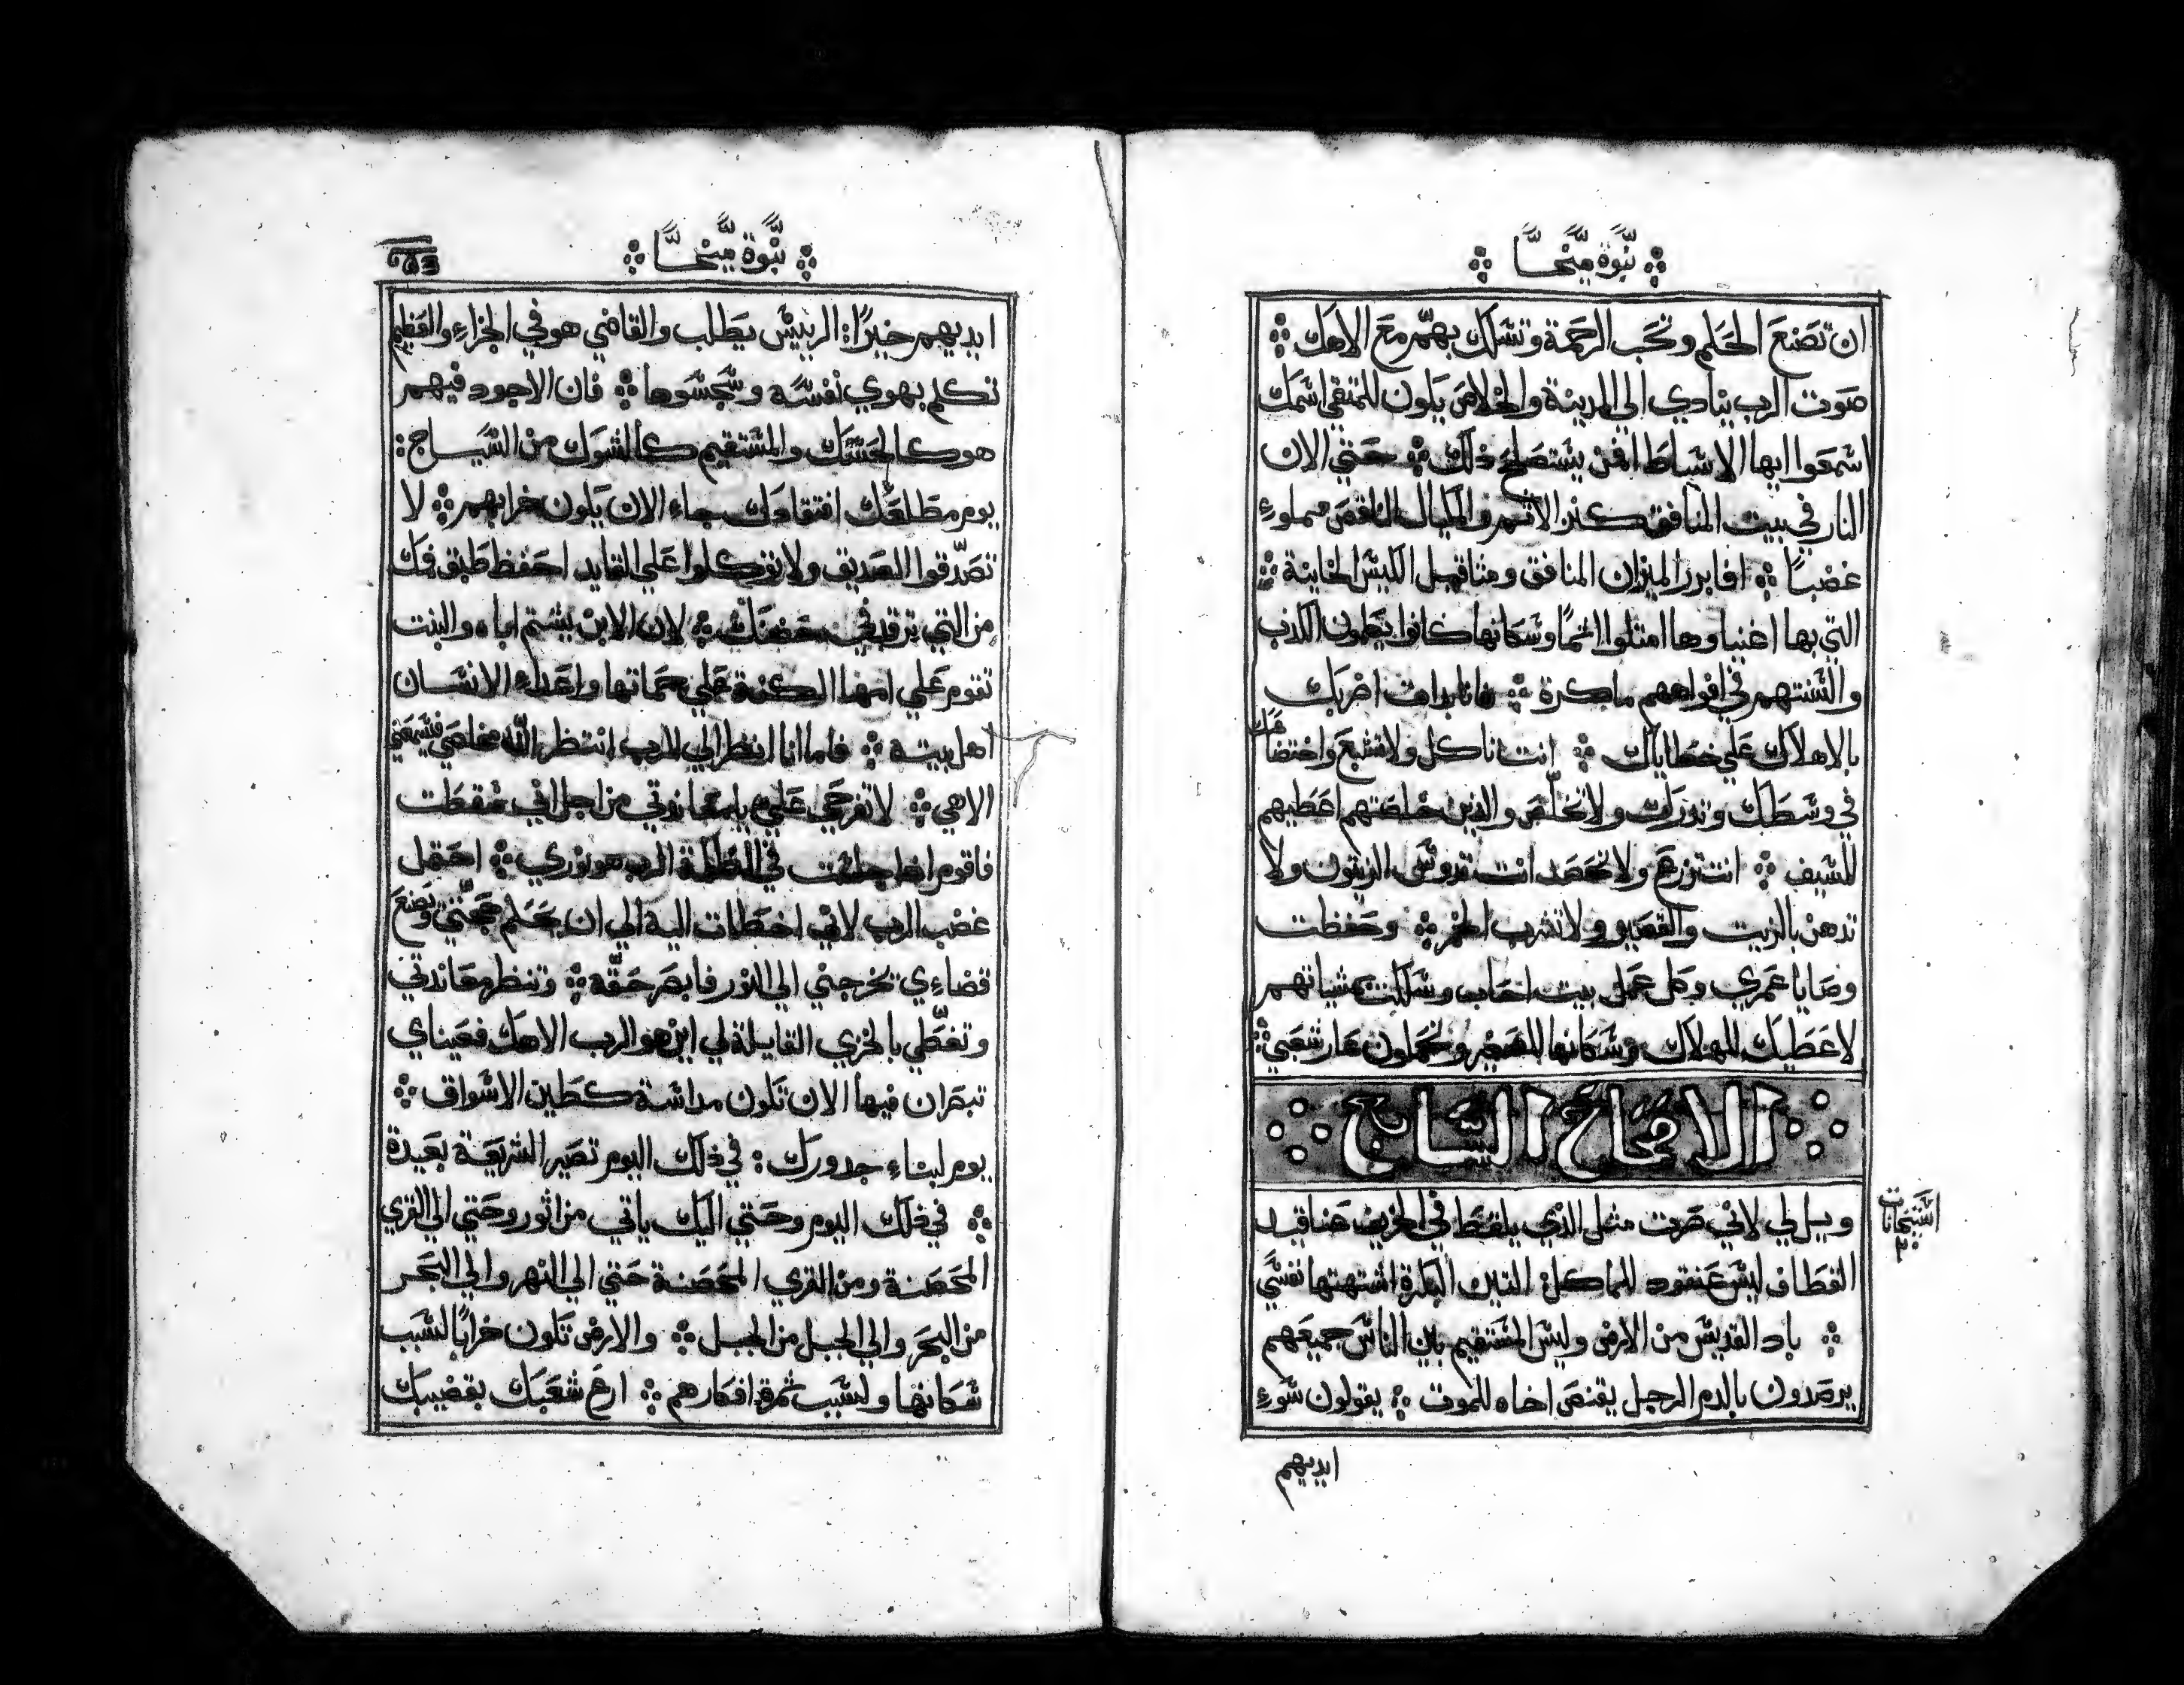 نبوة ميخا
ان تصنع الحكم وتحب الرحمة وتسلك بهمّ مع الاهك
صوت الرب ينادي الي المدينة والخلاص يكون للمتقي اسمك
اسمعوا ايها الاسباط افمن يستصلح ذلك حتي الان
النار في بيت المنافق كنز الاثم والمكيال الناقص مملوءٍ
غضباً افابرر الميزان المنافق ومثاقيل الكيس الخاينة
التي بها اغنياوها امتلوا اثماً وسكانها كانوا يتكلمون الكذب
والسنتهم في افواههم ماكرة فانا بدات اضربك
بالاهلاك علي خطاياك انت تاكل ولا تشبع واختضاعك
في وسطك وتدرك ولا تخلّص والذين خلصتهم اعطيهم
للسيف انت تزرع ولا تحصد انت تدوس الزيتون ولا
تدهن بالزيت والعصير ولا تشرب الخمر وحفظت
وصايا عمري وكل عمل بيت احاب وسلكت بمشياتهم
لاعطيك للهلاك وسكانها للصغير وتحملون عار شعبي
الاصحاح السابع
ويل لي لاني صرت مثل الذي يلقط في الخريف عناقيد
القطاف ليس عنقود للماكل التين البكرة اشتهتها نفسي
باد القديس من الارض وليس المستقيم بين الناس جميعهم
يرصدون بالدم الرجل يقنص اخاه للموت يقولون سوءِ
ايديهم
نبوة ميخا
ايديهم خيراً الرييس يطلب والقاضي هو في الجزاءِ والعظيم
تكلم بهوي نفسه وسجسوها فان الاجود فيهم
هو كالحسك والمستقيم كالشوك من السياج
يوم مطلعك افتقادك جاء الان يكون خرابهم لا
تصدّقوا الصديق ولا تتوكلوا علي القايد احفظ طبق فمك
من التي ترقد في حضنك لان الابن يشتم اباه والبنت
تقوم علي امها الكنة علي حماتها واعداء الانسان
اهل بيته فاما انا انظر الي الرب انتظر الله مخلصي فيسمعني
الاهي لا تفرحي عليّ يا معاندتي من اجل اني سقطت
فاقوم اذا جلست في الظلمة الرب هو نوري احتمل
غضب الرب لاني اخطات اليه الي ان يحكم حجتي ويصنع
قضاءِي تخرجني الي النور فابصر حقّه وتنظر معاندتي
وتغطّي بالخزي القايلة لي اين هو الرب الاهك فعيناي
تبصران فيها الان تكون مداسة كطين الاسواق
يوم لبناءِ جدورك في ذلك اليوم تصير الشريعة بعيدة
في ذلك اليوم وحتي اليك ياتي من اثور وحتي الي القري
المحصنة ومن القري المحصنة حتي الي النهر والي البحر
من البحر والي الجبل من الجبل والارض تكون خراباً لسبب
سكانها ولسبب ثمرة افكارهم ارع شعبك بقضيبك